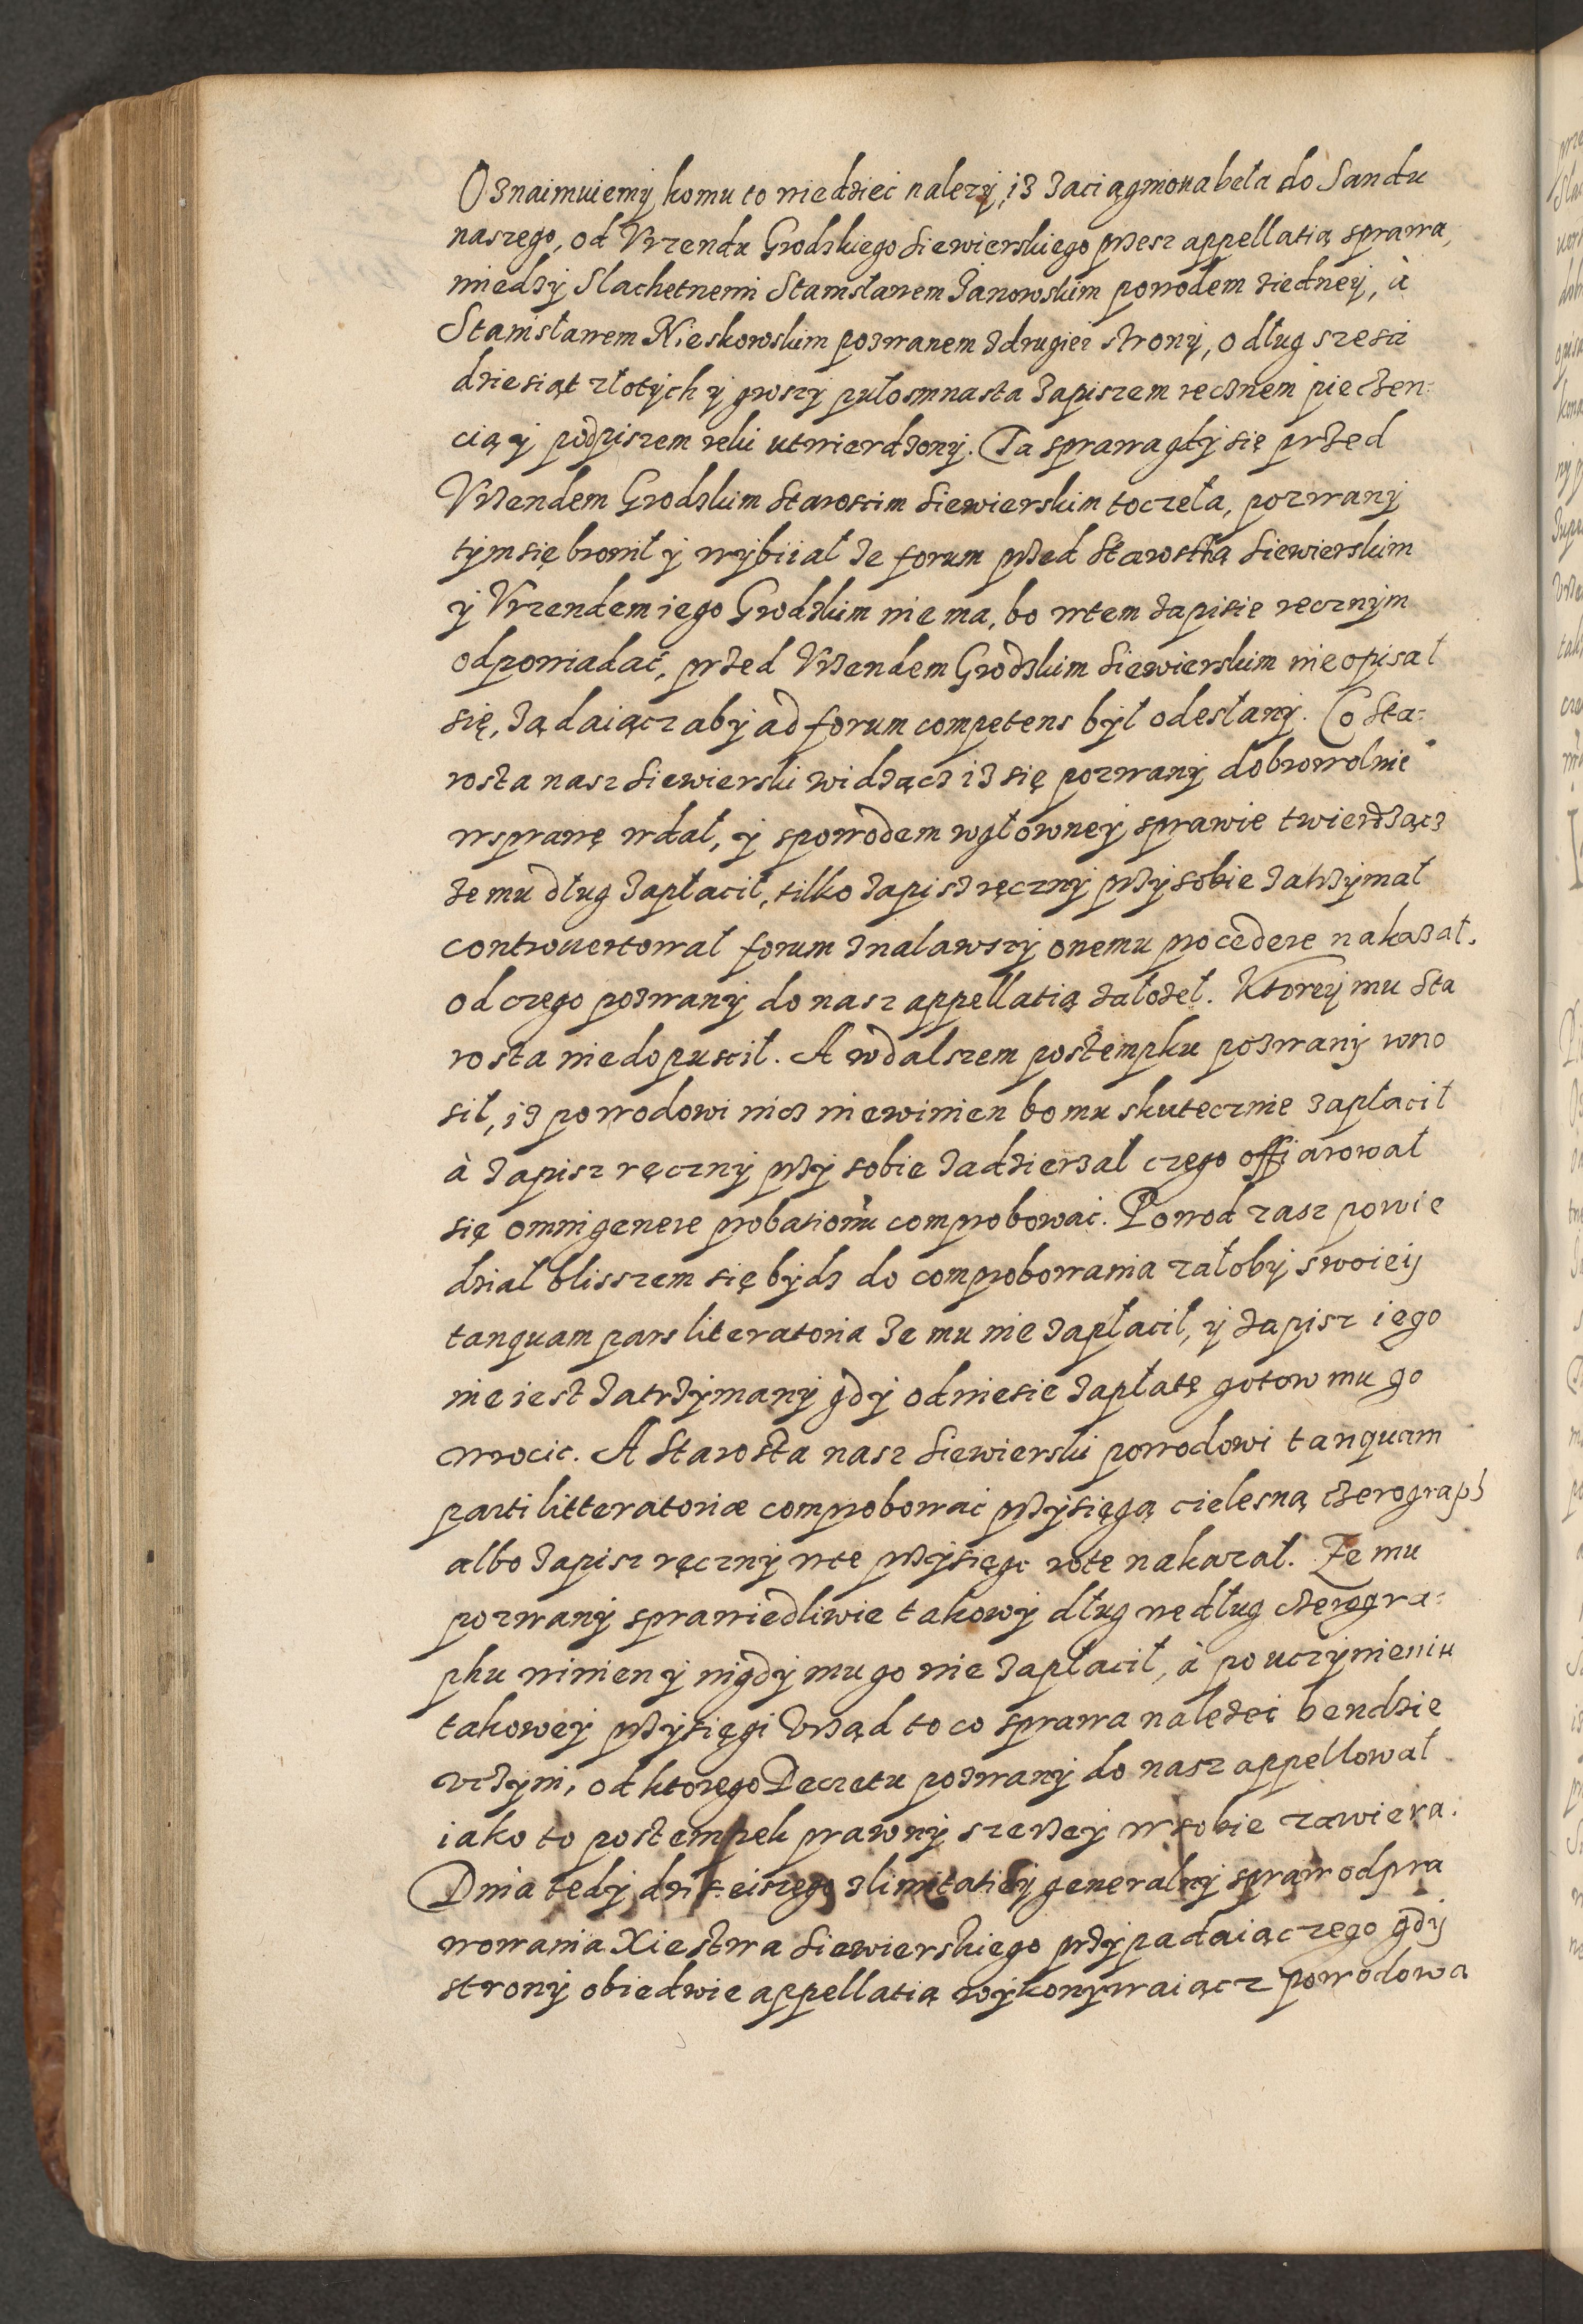 Oznaimuiemÿ komu to wiedziec nalezÿ, iz zaciągniona beła do Sandu
naszego, od Vrzendu Grodzkiego Siewierskiego przesz appellatią sprawa,
miedzÿ Slachetnemi Stanisławem Janowskim powodem ziednej, à
Stanisławem Nieskowskim pozwanem zdrugiei stronÿ, o dług szesci
dziesiąt złotÿch ÿ groszÿ pułosmnasta zapiszem recznem pieczen:
cią ÿ podpiszem reki utwierdzonÿ. Ta sprawa gdÿ się przed
Vrzendem Grodzkim Staroscim Siewierskim toczeła, pozwanÿ
tÿm się bronił ÿ wÿbiiał ze forum przed Starostą Siewierskim
ÿ Vrzendem iego Grodzkim nie ma, bo wtem zapisie recznÿm
odpowiadać, przed Vrzendem Grodzkim Siewierskim nie opisał
się, ządaiącz abÿ ad forum competens bÿł odesłanÿ. Co Sta:
rosta nasz Siewierski widzącz iz się pozwanÿ dobrowolnie
wsprawę wdał, ÿ spowodem wgłownej sprawie twierdzącz
ze mu dług zapłacił, tilko zapisz ręcznÿ przÿ sobie zatrzÿmał
controuertował forum znalawszÿ onemu procedere nakazał.
od czego pozwanÿ do nasz appellatią założeł. Ktorej mu Sta
rosta niedopuscił. A wdalszem postempku pozwanÿ wno
sił, iz powodowi nicz niewinien bo mu skutecznie zapłacił
à zapisz ręcznÿ przÿ sobie zadzierzał czego offiarował
się omni genere probationũ comprobowac. Powod zasz powie
dział blisszem się bÿdz do comprobowania załobÿ swoieij
tanquam pars literatoria ze mu nie zapłacił, ÿ zapisz iego
nie iest zatrzÿmanÿ gdÿ odniesie zapłatę gotow mu go
wrocic. A Starosta nasz Siewierski powodowi tanquam
parti litteratoriæ comprobować przÿsięgą cielesną czerograph
albo zapisz ręcznÿ wte przÿsięgi rotę nakazał. Ze mu
pozwanÿ sprawiedliwie takowÿ dług według czerogra:
phu winien ÿ nigdÿ mu go nie zapłacił, à po uczÿnieniu
takowej przÿsięgi Vrząd to co sprawa nalezei bendzie
vczÿni, od ktorego Decretu pozwanÿ do nasz appellował
iako to postempek prawnÿ szerzej wsobie zawiera.
Dnia tedÿ dzisieiszego zlimitatieÿ generalnÿ spraw odpra
wowania Xiestwa Siewierskiego przÿpadaiączego gdÿ
stronÿ obiedwie appellatią wÿkonÿwaiącz powodowa